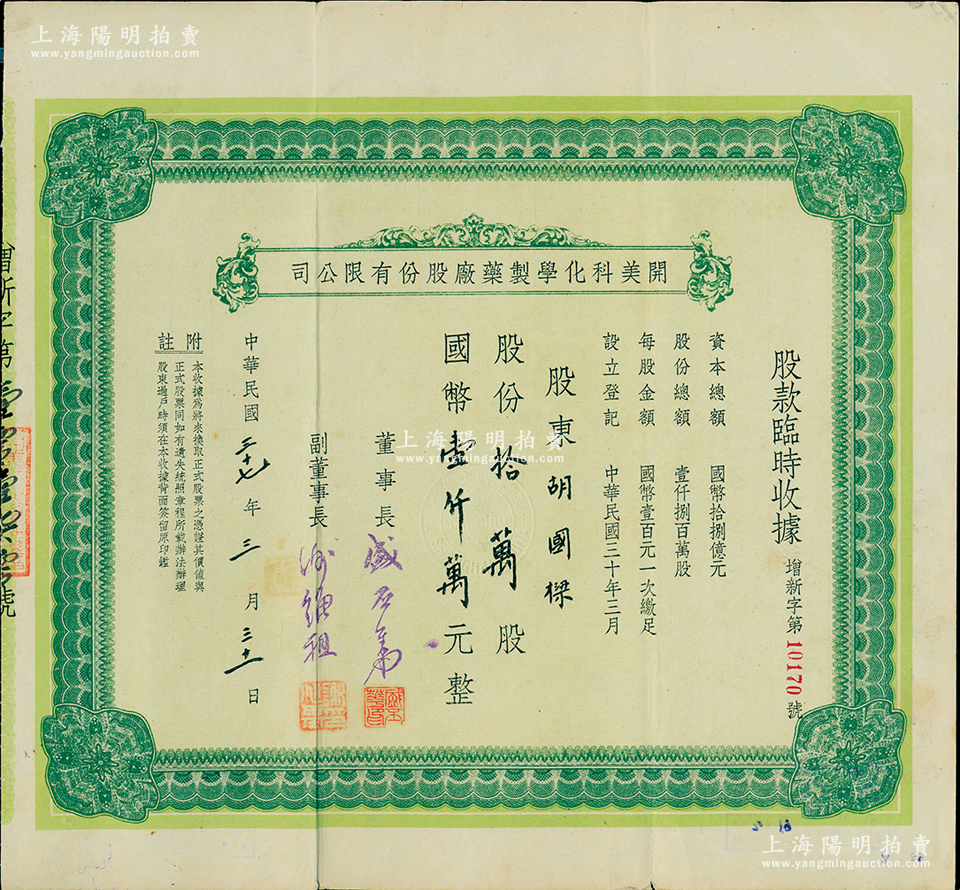 上海陽明拍賣
www.yangmingauction.com
上海陽明拍賣
www.yangmingauction.com
開美科化學製藥廠股份有限公司
股款臨時收據 增新字第10170號
資本總額 國幣拾捌億元
股份總額 壹仟捌百萬股
每股金額 國幣壹百元一次繳足
設立登記 中華民國三十年三月
股東胡國樑
股份拾萬股
國幣壹仟萬元整
董事長
副董事長
中華民國三十七年三月三十一日
附註
本收據為將來換取正式股票之憑證其價值與
正式股票同如有遺失統照章程所載辦法辦理
股東過戶時須在本收據背面簽留原印鑑
增新字第壹零壹柒零號
上海陽明拍賣
www.yangmingauction.com
上海陽明拍賣
www.yangmingauction.com